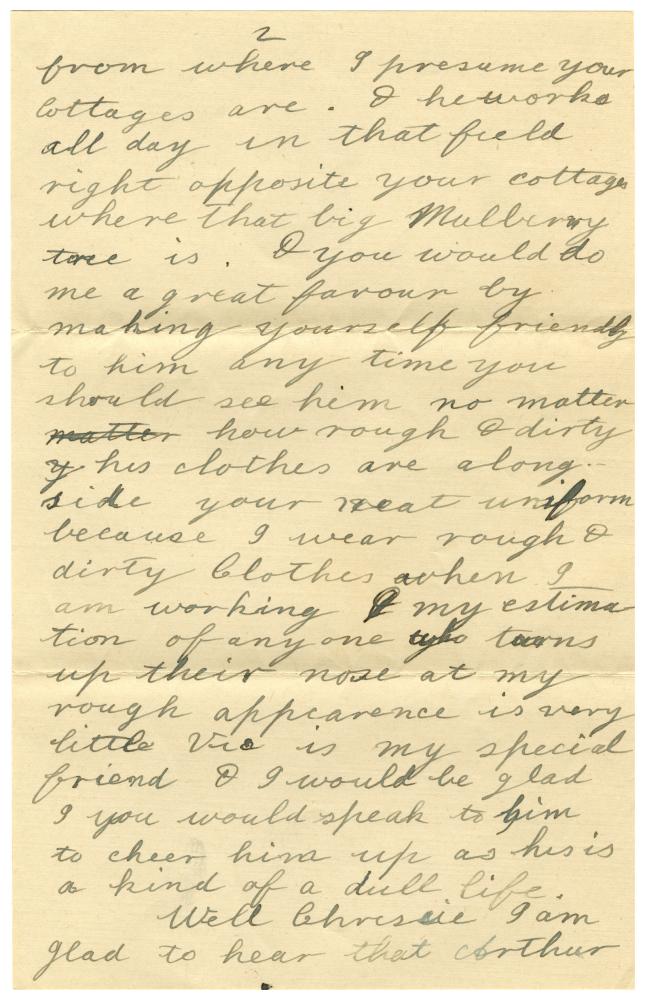 2
from where I presume your
cottages are. & he works
all day in that field
right opposite your cottages
where that big Mulberry
tree is. & you would do
me a great favour by
making yourself friendly
to him any time you
should see him no matter
matter how rough & dirty
his clothes are along-
side your neat uniform
because I wear rough &
dirty Clothes when I
am working & my estima
tion of anyone who turns
up their nose at my
rough appearence is very
little Vic is my special
friend & I would be glad
I you would speak to him
to cheer him up as his is
a kind of a dull life.
Well Chrissie I am
glad to hear that Arthur